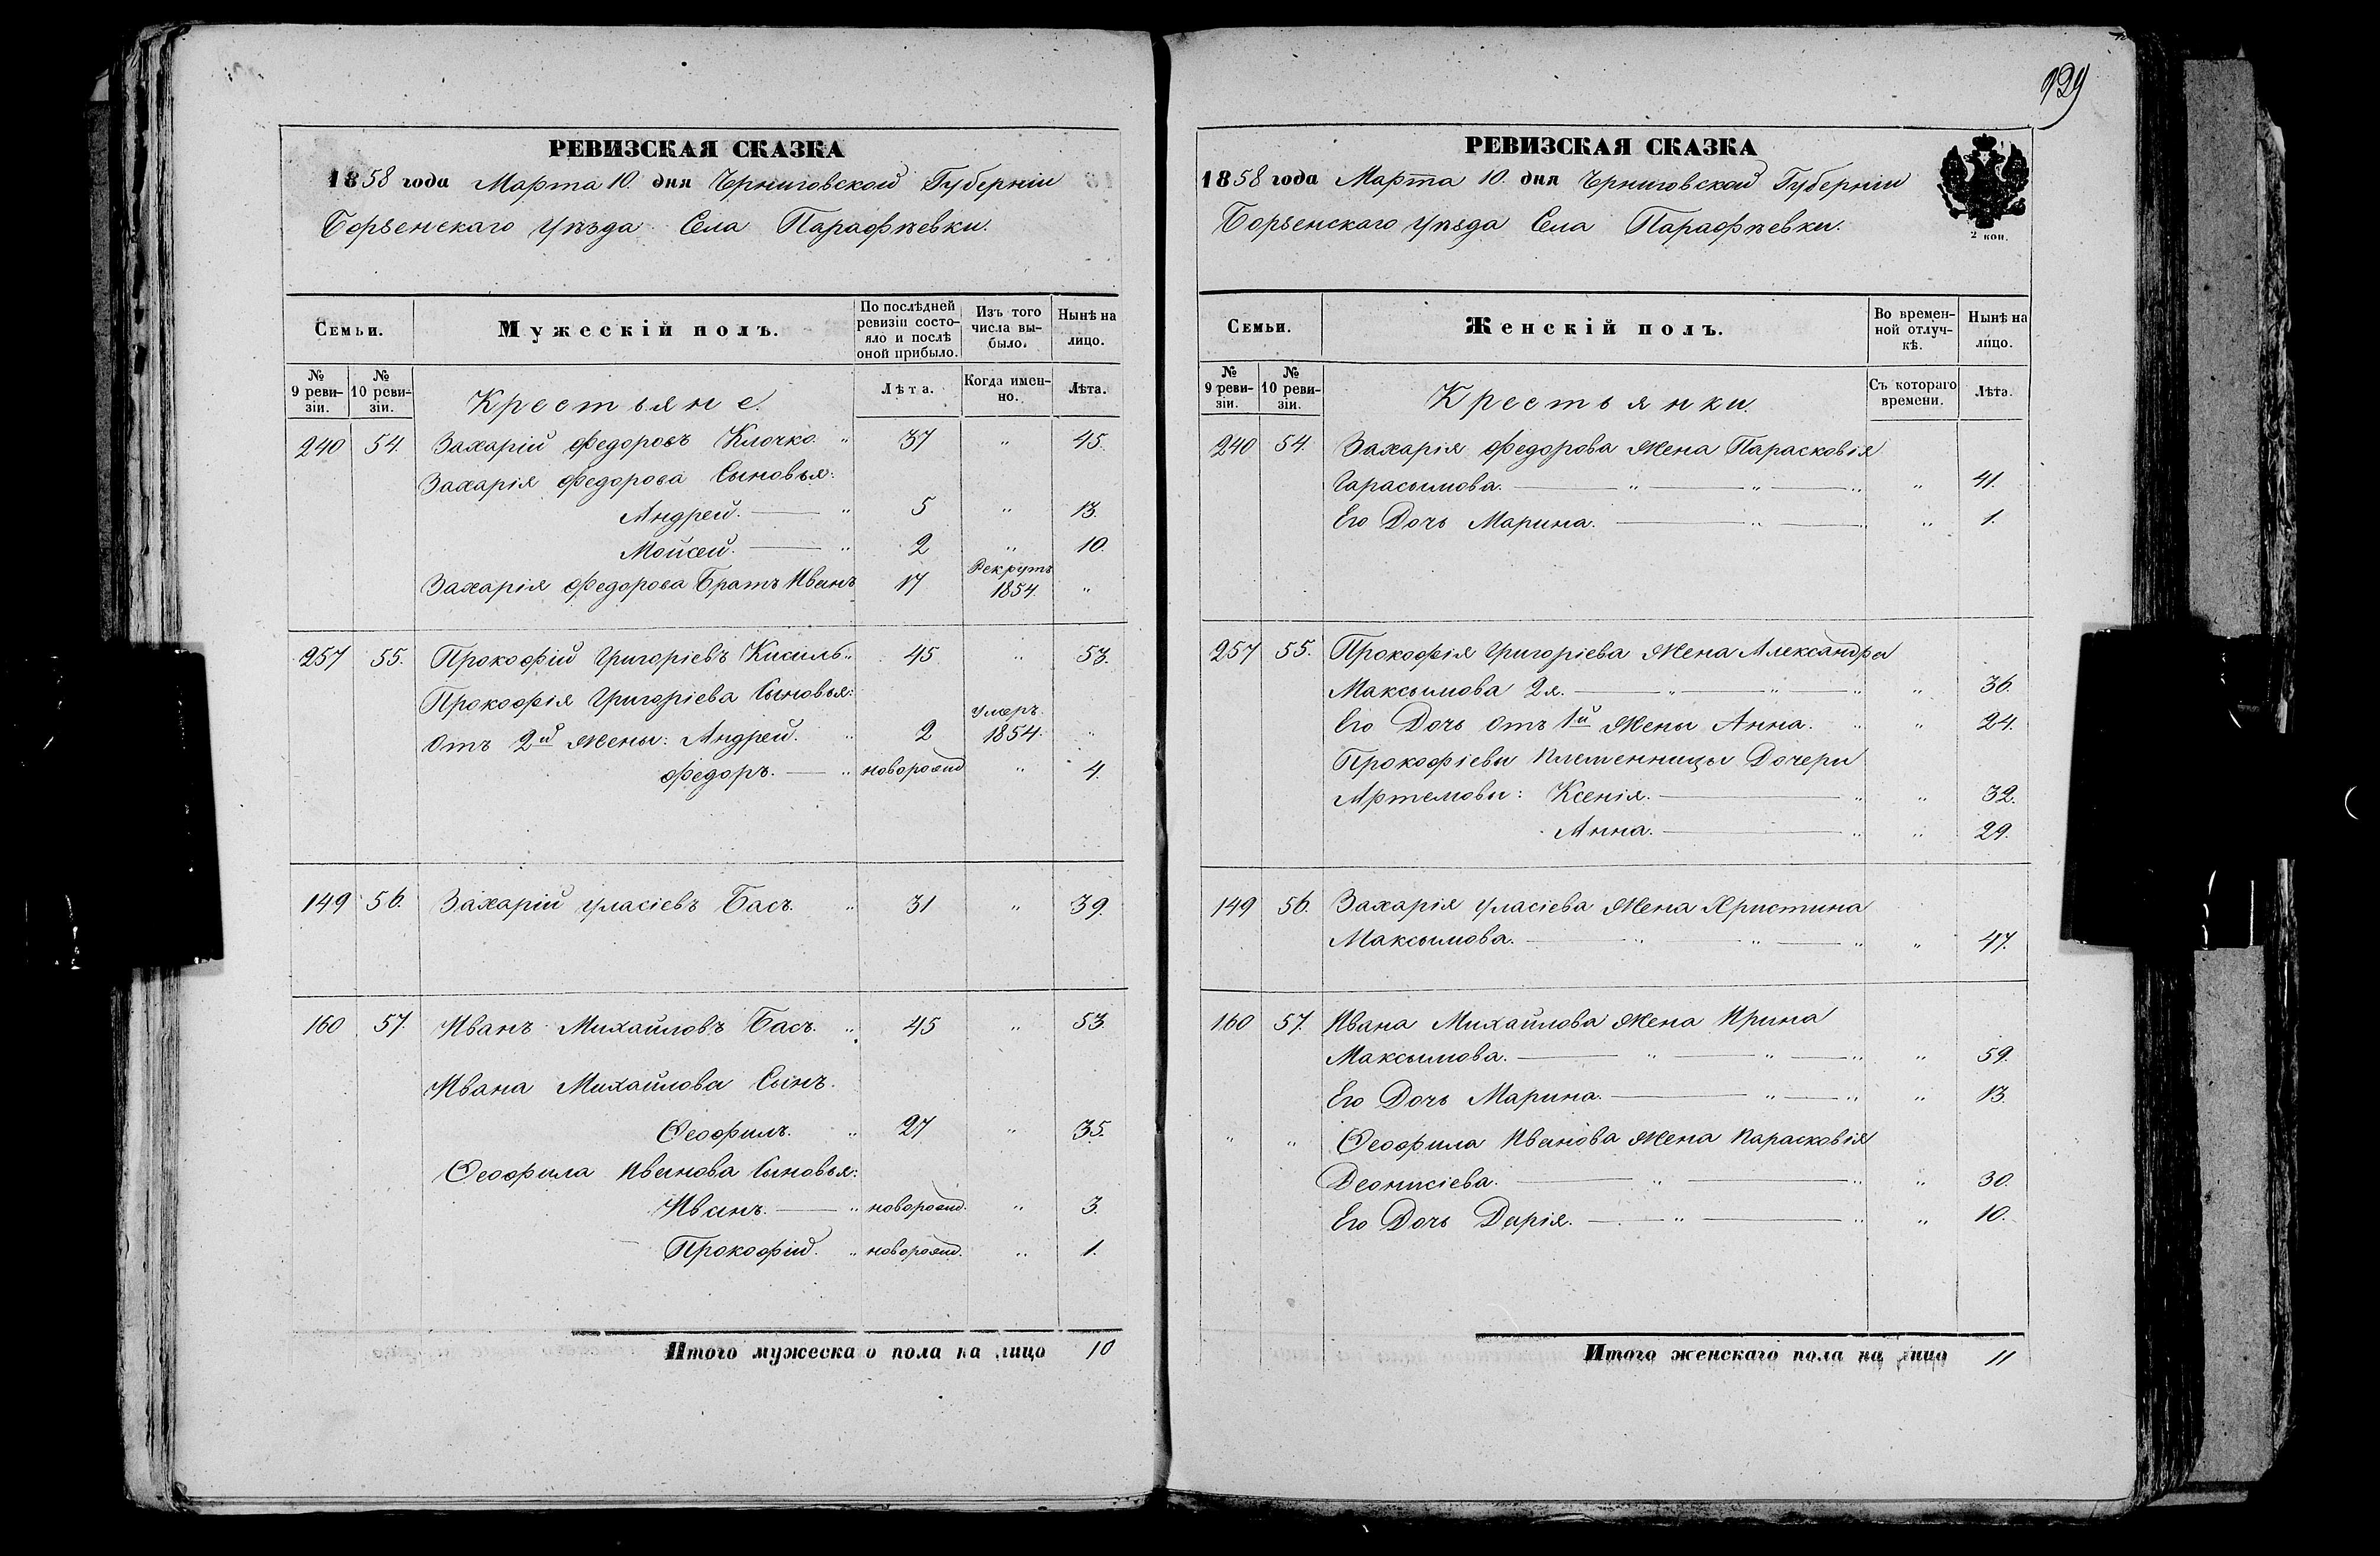 РЕВИЗСКАЯ СКАЗКА
1858 года Марта 10. дня Черниговской Губерніи
Борзенскаго Уѣзда Села Парафѣевки.
Семьи.
Мужескій полъ.
По послѣдней ревизіи состояло и послѣ оной прибыло.
Изъ того числа выбыло.
Нынѣ на лицо.
№ 9 ревизіи.
№ 10 ревизіи.
Крестьяне.
Лѣта.
Когда именно.
Лѣта.
240 54. Захарій Федоровъ Клочко. " 37 " 45.
Захарія Федорова Сыновья:
Андрей. — " 5 " 13.
Мойсей. — " 2 " 10.
Захарія Федорова Братъ Иванъ 17 Рекрутъ 1854. "
257 55. Прокофій Григоріевъ Кисиль " 45 " 53.
Прокофія Григоріева Сыновья:
Отъ 2й Жены: Андрей. " 2 умеръ 1854. "
Федоръ. — " новорожд " 4.
149 56. Захарій Уласіевъ Басъ. " 31 " 39.
160 57. Иванъ Михайловъ Басъ. " 45 " 53.
Ивана Михайлова Сынъ.
Ѳеофилъ. " 27 " 35.
Ѳеофила Иванова Сыновья:
Иванъ. — " новорожд. " 3.
Прокофій. " новорожд. " 1.
Итого мужеска о пола на лицо 10
129
РЕВИЗСКАЯ СКАЗКА
1858 года Марта 10. дня Черниговской Губерніи
Борзенскаго Уѣзда Села Парафѣевки.
2 коп.
Семьи.
Женскій полъ.
Во временной отлучкѣ.
Нынѣ на лицо.
№ 9 ревизіи.
№ 10 ревизіи.
Крестьянки.
Съ котораго времени.
Лѣта.
240 54. Захарія Федорова Жена Парасковія
Гарасымова. — " — " — " " 41.
Его Дочь Марина. — " — " " 1.
257 55. Прокофія Григоріева Жена Александра
Максымова 2я. — " — " — " " 36.
Его Дочь отъ 1й Жены Анна. " " 24.
Прокофіевы племенницы Дочери
Артемовы: Ксенія. — " " 32.
Анна. — " " 29.
149 56. Захарія Уласіева Жена Христина
Максымова. — " — " — " " 47.
160 57. Ивана Михайлова Жена Ирина
Максымова. — " — " — " " 59.
Его Дочь Марина. — " — " " 13.
" " Ѳеофила Иванова Жена Парасковія
Деонисіева. — " — " " 30.
Его Дочь Дарія. — " — " " 10.
Итого женскаго пола на лицо 11